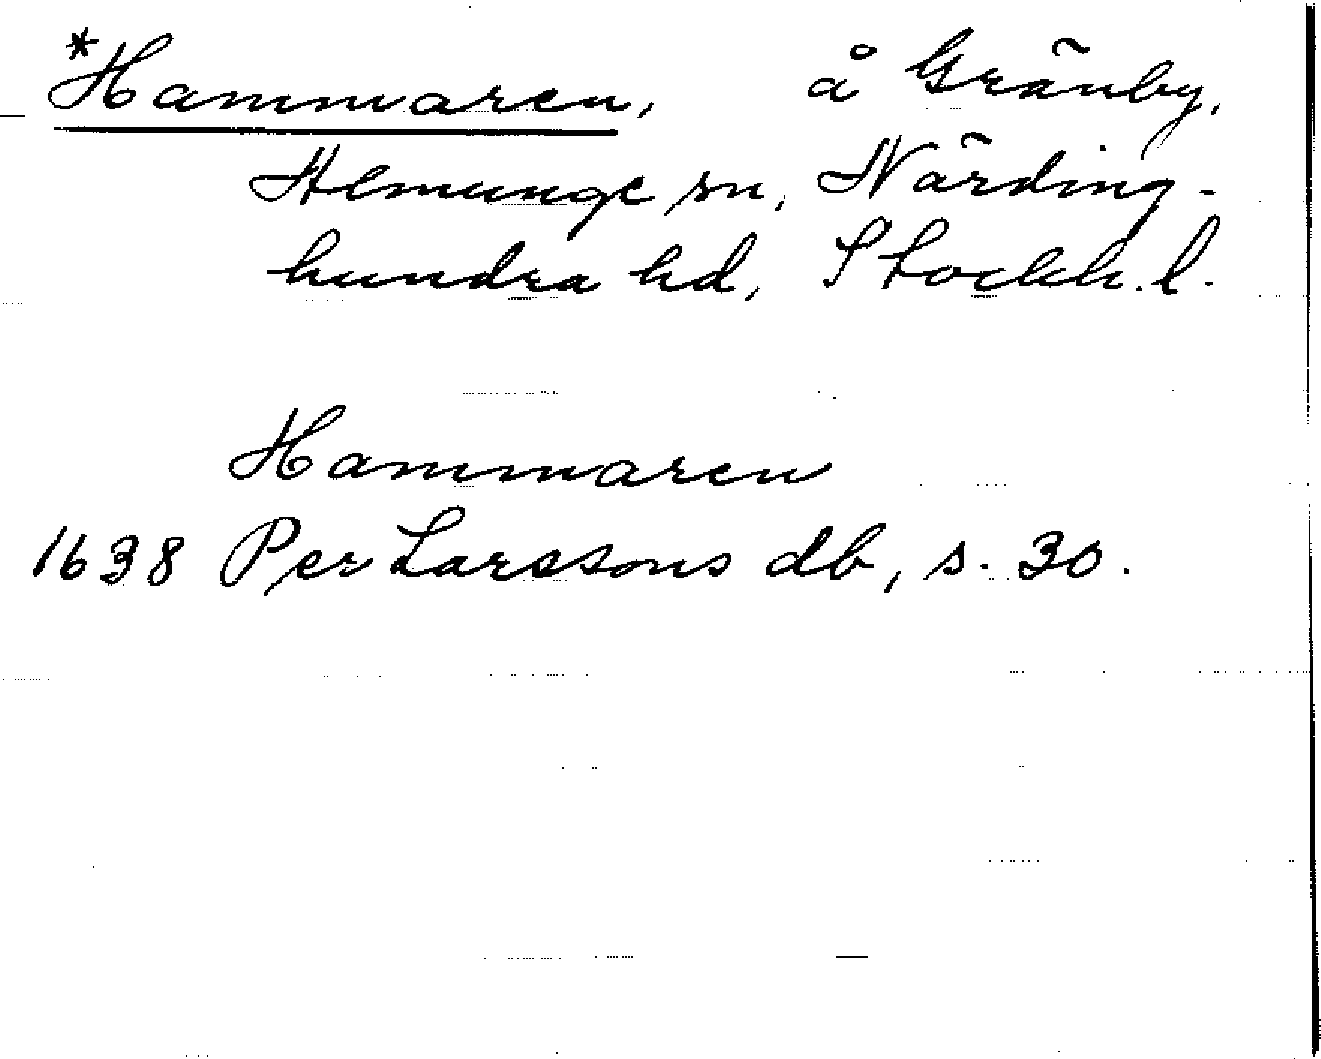 *Hammaren, å Gränby,
Almunge sn, Närding-
hundra hd, Stockh. l.
Hammaren
1638 Per Larssons db, s. 30.